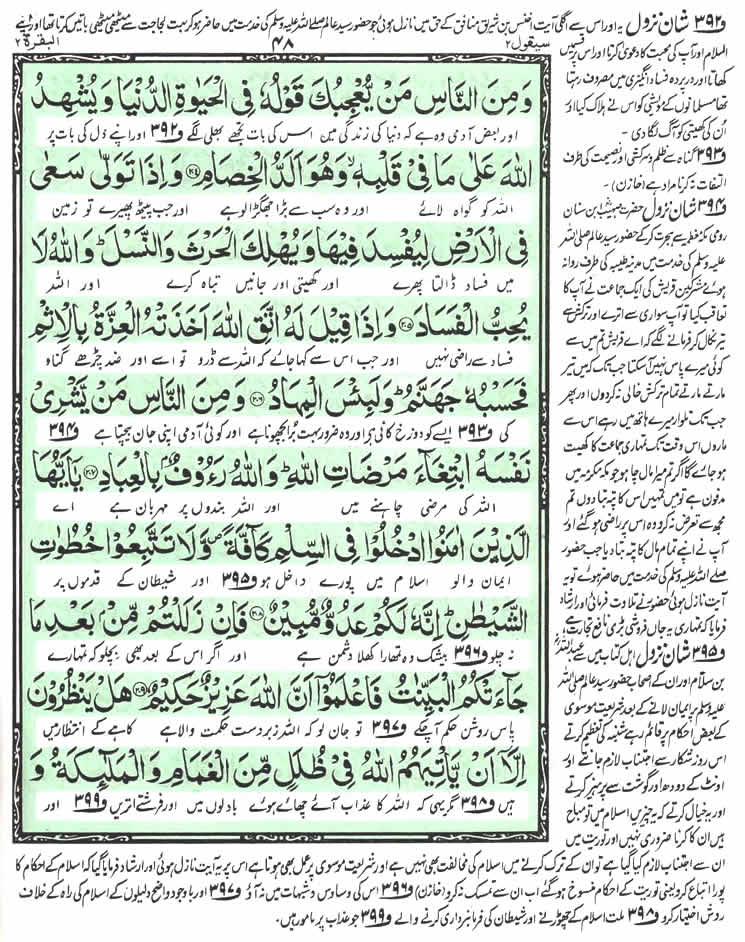 و۳۹۲ شان نزول یہ اور اس سے اگلی آیت اخنس بن شریق منافق کے حق میں نازل ہوئی جو حضور سید عالم صلے اللہ علیہ وسلم کی خدمت میں حاضر ہو کر بہت لجاجت سے میٹھی میٹھی باتیں کرتا تھا اور اپنے
سیقول ۲
۴۸
البقرة ۲
وَمِنَ النَّاسِ مَنْ يُّعْجِبُكَ قَوْلُهٗ فِي الْحَيٰوةِ الدُّنْيَا وَيُشْهِدُ
اور بعض آدمی وہ ہے کہ دنیا کی زندگی میں اس کی بات تجھے بھلی لگے و۳۹۲ اور اپنے دل کی بات پر
اللّٰهَ عَلٰى مَا فِيْ قَلْبِهٖ ۙ وَهُوَ اَلَدُّ الْخِصَامِ ۝۲۰۴ وَاِذَا تَوَلّٰى سَعٰى
اللہ کو گواہ لائے اور وہ سب سے بڑا جھگڑالو ہے اور جب پیٹھ پھیرے تو زمین
فِي الْاَرْضِ لِيُفْسِدَ فِيْهَا وَيُهْلِكَ الْحَرْثَ وَالنَّسْلَ ؕ وَاللّٰهُ لَا
میں فساد ڈالتا پھرے اور کھیتی اور جانیں تباہ کرے اور اللہ
يُحِبُّ الْفَسَادَ ۝۲۰۵ وَاِذَا قِيْلَ لَهُ اتَّقِ اللّٰهَ اَخَذَتْهُ الْعِزَّةُ بِالْاِثْمِ
فساد سے راضی نہیں اور جب اس سے کہا جائے کہ اللہ سے ڈرو تو اسے اور ضد چڑھے گناہ
فَحَسْبُهٗ جَهَنَّمُ ؕ وَلَبِئْسَ الْمِهَادُ ۝۲۰۶ وَمِنَ النَّاسِ مَنْ يَّشْرِيْ
کی و۳۹۳ ایسے کو دوزخ کافی ہے اور وہ ضرور بہت برا بچھونا ہے اور کوئی آدمی اپنی جان بیچتا ہے و۳۹۴
نَفْسَهُ ابْتِغَآءَ مَرْضَاتِ اللّٰهِ ؕ وَاللّٰهُ رَءُوْفٌۢ بِالْعِبَادِ ۝۲۰۷ يٰۤاَيُّهَا
اللہ کی مرضی چاہنے میں اور اللہ بندوں پر مہربان ہے اے
الَّذِيْنَ اٰمَنُوا ادْخُلُوْا فِي السِّلْمِ كَآفَّةً ۪ وَّلَا تَتَّبِعُوْا خُطُوٰتِ
ایمان والو اسلام میں پورے داخل ہو و۳۹۵ اور شیطان کے قدموں پر
الشَّيْطٰنِ ؕ اِنَّهٗ لَكُمْ عَدُوٌّ مُّبِيْنٌ ۝۲۰۸ فَاِنْ زَلَلْتُمْ مِّنْۢ بَعْدِ مَا
نہ چلو و۳۹۶ بیشک وہ تمھارا کھلا دشمن ہے اور اگر اس کے بعد بھی بچلو کہ تمہارے
جَآءَتْكُمُ الْبَيِّنٰتُ فَاعْلَمُوْۤا اَنَّ اللّٰهَ عَزِيْزٌ حَكِيْمٌ ۝۲۰۹ هَلْ يَنْظُرُوْنَ
پاس روشن حکم آچکے و۳۹۷ تو جان لو کہ اللہ زبردست حکمت والا ہے کاہے کے انتظار میں
اِلَّاۤ اَنْ يَّاْتِيَهُمُ اللّٰهُ فِيْ ظُلَلٍ مِّنَ الْغَمَامِ وَالْمَلٰٓئِكَةُ وَ
ہیں و۳۹۸ مگر یہی کہ اللہ کا عذاب آئے چھائے ہوئے بادلوں میں اور فرشتے اتریں و۳۹۹ اور
السلام اور آپ کی محبت کا دعوی کرتا اور اس پر قسمیں
کھاتا اور درپردہ فساد انگیزی میں مصروف رہتا
تھا مسلمانوں کے مویشی کو اس نے ہلاک کیا اور
ان کی کھیتی کو آگ لگا دی۔
و۳۹۳ گناہ سے ظلم و سرکشی اور نصیحت کی طرف
التفات نہ کرنا مراد ہے (خازن)۔
و۳۹۴ شان نزول حضرت صہیب بن سنان
رومی مکہ معظمہ سے ہجرت کرکے حضور سید عالم صلی اللہ
علیہ وسلم کی خدمت میں مدینہ طیبہ کی طرف روانہ
ہوئے مشرکین قریش کی ایک جماعت نے آپ کا
تعاقب کیا تو آپ سواری سے اترے اور ترکش سے
تیر نکال کر فرمانے لگے کہ اے قریش تم میں سے
کوئی میرے پاس نہیں آسکتا جب تک کہ میں تیر
مارتے مارتے تمام ترکش خالی نہ کردوں اور پھر
جب تک تلوار میرے ہاتھ میں رہے اس سے
ماروں اس وقت تک تمہاری جماعت کا کھیت
ہو جائے گا اگر تم میرا مال چاہو جو مکہ مکرمہ میں
مدفون ہے تو میں تمہیں اس کا پتہ بتا دوں تم
مجھ سے تعرض نہ کرو وہ اس پر راضی ہوگئے اور
آپ نے اپنے تمام مال کا پتہ بتا دیا جب حضور
صلے اللہ علیہ وسلم کی خدمت میں حاضر ہوئے تو یہ
آیت نازل ہوئی حضور نے تلاوت فرمائی اور ارشاد
فرمایا کہ تمہاری یہ جاں فروشی بڑی نافع تجارت ہے
و۳۹۵ شان نزول اہل کتاب میں سے عبداللہ
بن سلام اور ان کے اصحاب حضور سید عالم صلی اللہ
علیہ وسلم پر ایمان لانے کے بعد شریعت موسوی
کے بعض احکام پر قائم رہے شنبہ کی تعظیم کرتے
اس روز شکار سے اجتناب لازم جانتے اور
اونٹ کے دودھ اور گوشت سے پرہیز کرتے
اور یہ خیال کرتے کہ یہ چیزیں اسلام میں تو مباح
ہیں ان کا کرنا ضروری نہیں اور توریت میں
ان سے اجتناب لازم کیا گیا ہے تو ان کے ترک کرنے میں اسلام کی مخالفت بھی نہیں ہے اور شریعت موسوی پر عمل بھی ہوتا ہے اس پر یہ آیت نازل ہوئی اور ارشاد فرمایا گیا کہ اسلام کے احکام کا
پورا اتباع کرو یعنی توریت کے احکام منسوخ ہوگئے اب ان سے تمسک نہ کرو (خازن) و۳۹۶ اس کی وساوس و شبہات میں نہ آؤ و۳۹۷ اور باوجود واضح دلیلوں کے اسلام کی راہ کے خلاف
روش اختیار کرو و۳۹۸ ملت اسلام کے چھوڑنے اور شیطان کی فرمانبرداری کرنے والے و۳۹۹ جو عذاب پر مامور ہیں۔